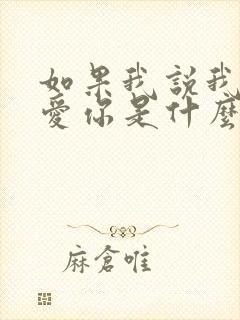 如果我說我
愛你是什麼
麻倉唯